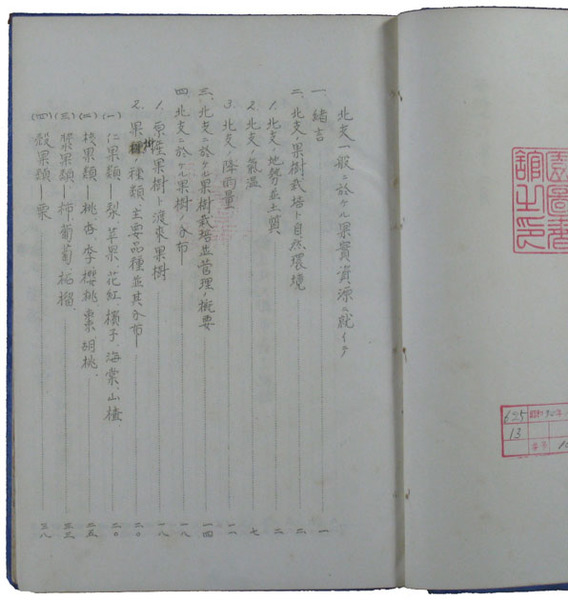 北支一般ニ於ケル果實資源ニ就イテ
一. 緒言 一
二. 北支ノ果樹栽培ト自然環境 二
1. 北支ノ地勢並土質 二
2. 北支ノ氣溫 七
3. 北支ノ降雨量 一一
三. 北支ニ於ケル果樹栽培並管理ノ概要 一四
四. 北支ニ於ケル果樹ノ分布 一八
1. 原産果樹ト渡來果樹 一八
2. 果樹ノ種類、主要品種並其分布 二〇
(一) 仁果類—梨、苹果、花紅、檳子、海棠、山楂、 二〇
(二) 核果類—桃、杏、李、櫻桃、棗、胡桃、 二五
(三) 漿果類—柿、葡萄、柘榴、 三三
(四) 殼果類—栗 三八
園圖書
舘之印
625
13